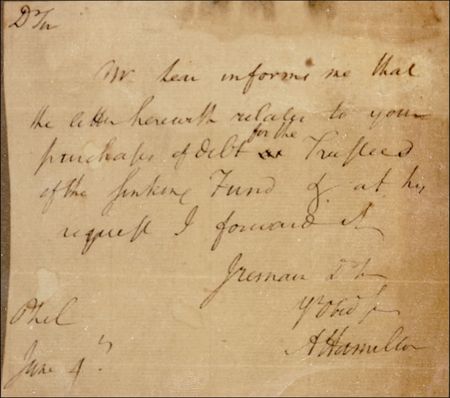 Dr Sir
Mr. Lear informs me that
the letter herewith relates to your
purchases of debt for the Trustees
of the Sinking Fund & at his
request I forward it
I remain D Sir
Yr Obed S
A Hamilton
Phil
June 4th